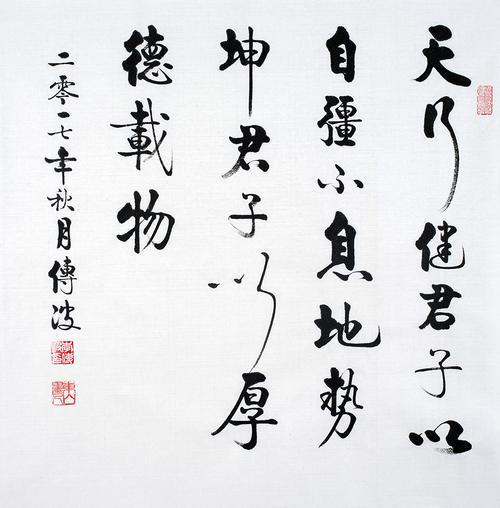 天行健君子以
自彊不息地勢
坤君子以厚
德載物
二零一七年秋月傳波